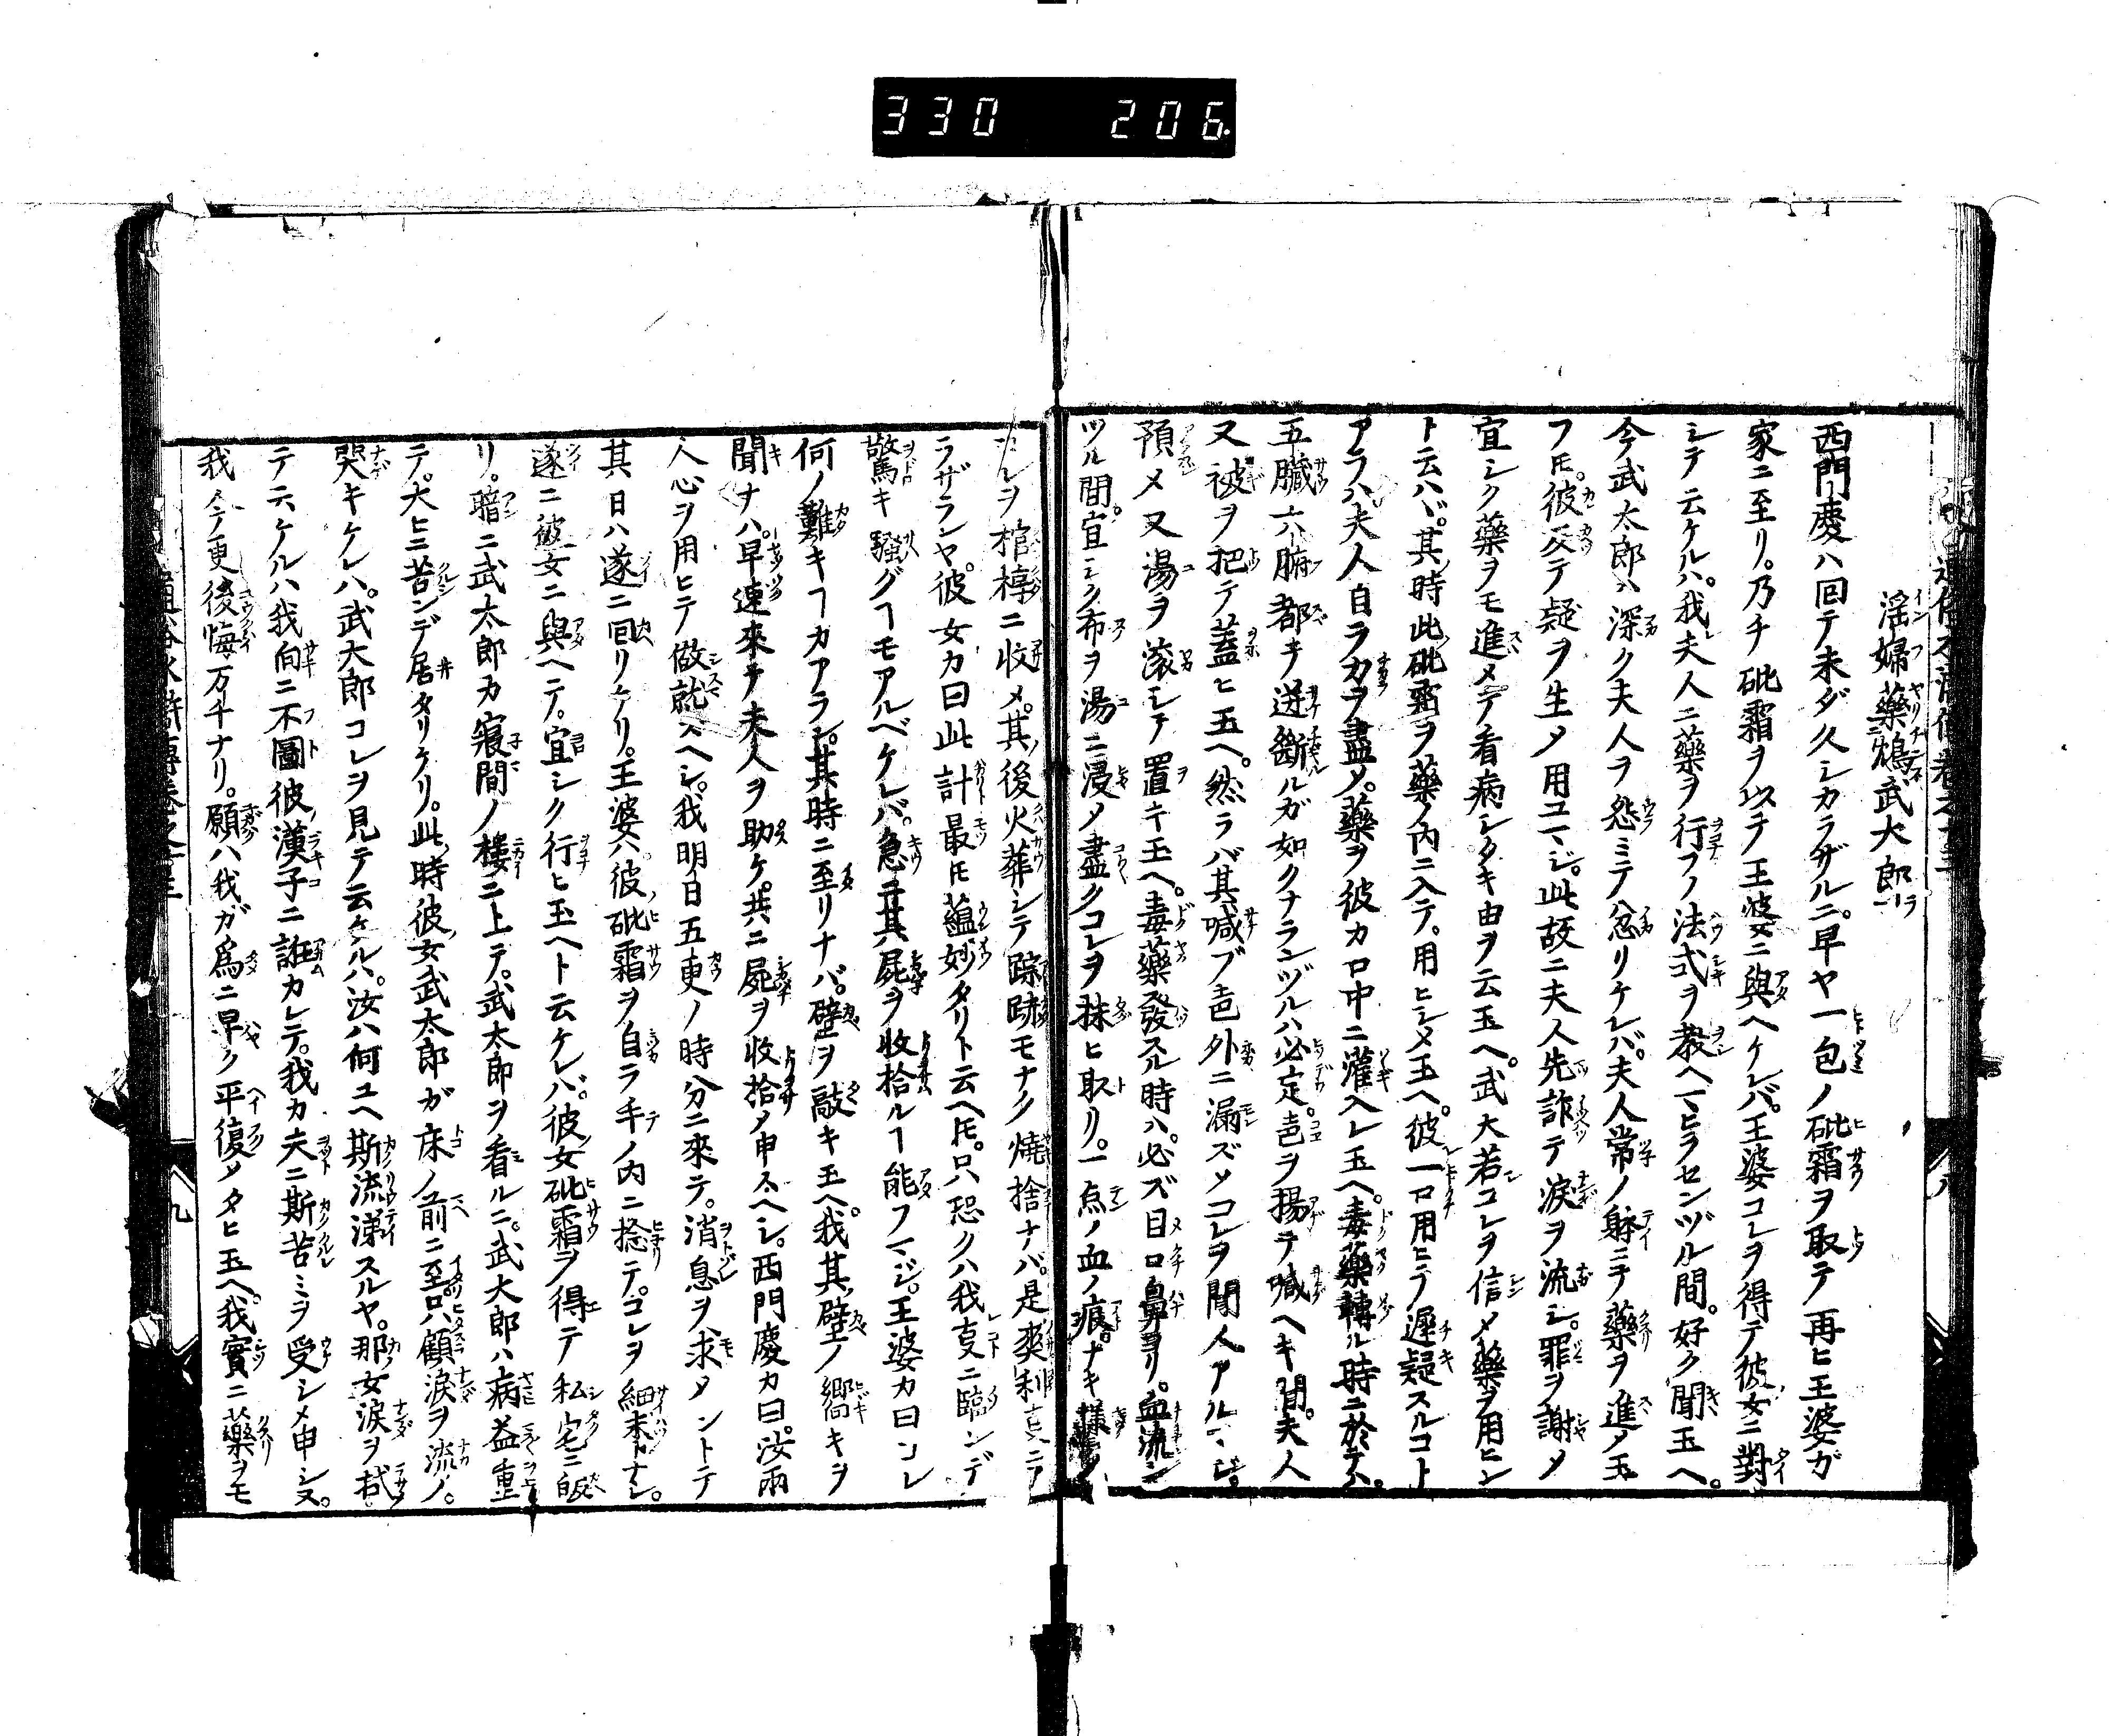 330 206
淫婦藥鴆武大郎
西門慶ハ回テ未ダ久シカラザルニ。早ヤ一包ノ砒霜ヲ取テ再ヒ王婆ガ
家ニ至リ。乃チ砒霜ヲ以テ王婆ニ與ヘケレバ。王婆コレヲ得テ彼女ニ對
シテ云ケルハ。我夫人ニ藥ヲ行フノ法式ヲ教ヘマヒラセンヅル間。好ク聞玉ヘ。
今武太郎ハ深ク夫人ヲ怨ミテハ忍リケレバ。夫人常ノ躰ニテ藥ヲ進メ玉
フ𪜈。彼反テ疑ヲ生メ用ユマジ。此故ニ夫人先詐テ涙ヲ流シ。罪ヲ謝メ
宜シク藥ヲモ進メテ看病シタキ由ヲ云玉ヘ。武大若コレヲ信メ藥ヲ用ヒン
ト云ハバ。其時此砒霜ヲ藥ノ内ニ入テ。用ヒシメ玉ヘ。彼一口用ヒテ遲疑スルコト
アラハ。夫人自ラ力ヲ盡メ。藥ヲ彼カ口中ニ灌入レ玉ヘ。毒藥轉ル時ニ於テハ。
五臟六腑都キ迸斷ルガ如クナランヅルハ必定。声ヲ揚テ喊ヘキ間。夫人
又被ヲ把テ蓋ヒ玉ヘ。然ラバ其喊ブ声外ニ漏ズメコレヲ聞人アルマジ。
預メ又湯ヲ滚シテ置キ玉ヘ。毒藥發スル時ハ。必ズ目口鼻ヨリ。血流レ
ツル間。宜シク布ヲ湯ニ浸メ盡クコレヲ抹ヒ取リ。一点ノ血ノ痕ナキ樣ニメ
コレヲ棺椁ニ收メ。其後火葬シテ踪跡モナク燒捨ナバ。是爽利
ラザランヤ。彼女カ曰此計最𪜈蘊妙タリト云ヘ𪜈。只恐クハ我㕝ニ臨ンデ
驚キ騷グヿモアルベケレバ。急ニ其屍ヲ收拾ルヿ能フマジ。王婆カ曰コレ
何ノ難キヿカアラン。其時ニ至リナバ。壁ヲ敲キ玉ヘ。我其壁ノ響キヲ
聞ナハ。早速來テ夫人ヲ助ケ。共ニ屍ヲ收拾メ申スヘシ。西門慶カ曰。汝兩
人心ヲ用ヒテ做就スヘシ。我明日五更ノ時分ニ來テ。消息ヲ求メントテ
其日ハ遂ニ回リケリ。王婆ハ。彼砒霜ヲ自ラ手ノ内ニ捻テ。コレヲ細末トナシ。
遂ニ彼女ニ與ヘテ。宜シク行ヒ玉ヘト云ケレバ。彼女砒霜ヲ得テ私宅ニ皈
リ。暗ニ武太郎カ寢間ノ樓ニ上テ。武太郎ヲ看ルニ。武大郎ハ病益重
テ。大ヒニ苦ンデ居タリケリ。此時彼女武太郎ガ床ノ前ニ至只顧涙ヲ流メ。
哭キケレハ。武大郎コレヲ見テ云ケルハ。汝ハ何ユヘ斯流涕スルヤ。那女涙ヲ拭
テ云ケルハ我向ニ不圖彼漢子ニ誑カレテ。我カ夫ニ斯苦ミヲ受シメ申シヌ。
我今更後悔万千ナリ。願ハ我ガ爲ニ早ク平復メタヒ玉ヘ。我實ニ藥ヲモ
八
九